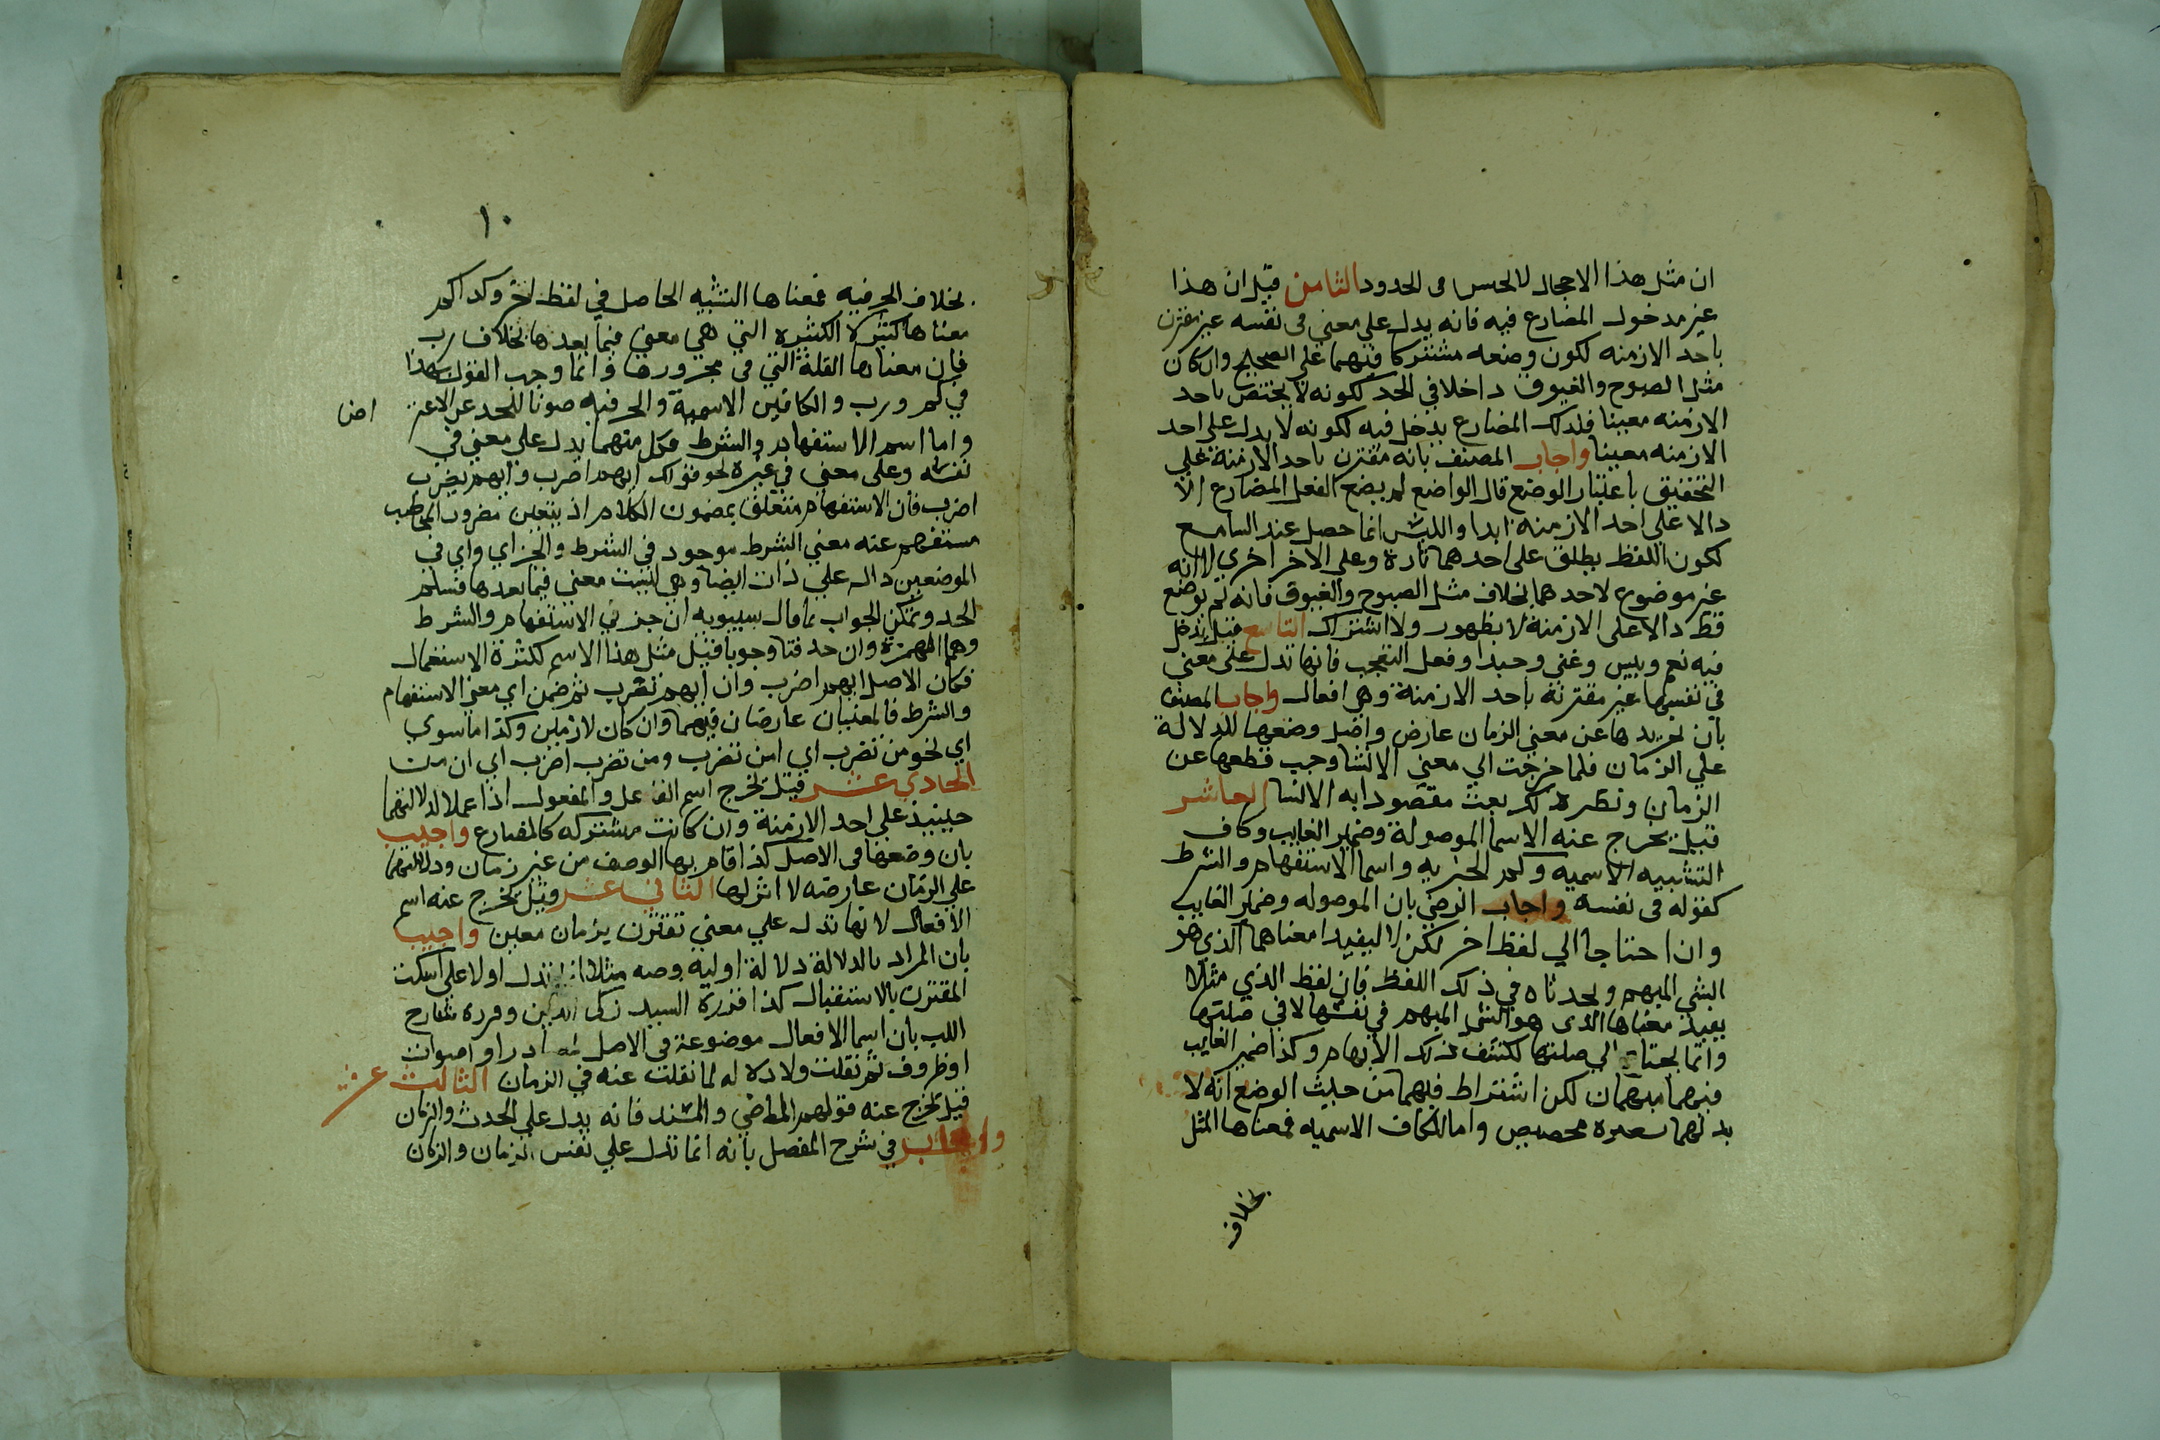 ان مثل هذا الاجمال لا يحسن فى الحدود الثامن قيل ان هذا
غير مدخول المضارع فيه فانه يدل على معنى فى نفسه غير مقترن
باحد الازمنه لكون وضعه مشتركا فيهما على الصحيح وان كان
مثل الصبوح والغبوق داخلا في الحد لكونه لا يختص باحد
الازمنه معينا فلذلك المضارع يدخل فيه لكونه لا يدل على احد
الازمنه معينا واجاب المصنف بانه مقترن باحد الازمنة على
التحقيق باعتبار الوضع قال الواضع لم يضع الفعل المضارع الا
دالا على احد الازمنة ابدا واللبس انما حصل عند السامع
لكون اللفظ يطلق على احدهما تارة وعلى الاخر اخري لا انه
غير موضوع لاحدهما بخلاف مثل الصبوح والغبوق فانه لم يوضع
قط دالا على الازمنة لا بظهور ولا اشتراك التاسع قيل يدخل
فيه نعم وبيس وعسى وحبذا وفعل التعجب فانها تدل على معنى
في نفسها غير مقترنة باحد الازمنة وهي افعال واجاب المصنف
بان تجريدها عن معنى الزمان عارض واصل وضعها للدلالة
علي الزمان فلما خرجت الي معنى الانشا وجب قطعها عن
الزمان ونظيره لك بعت مقصودا به الانشا العاشر
قيل يخرج عنه الاسما الموصولة وضمير الغايب وكاف
التشبيه الاسمية وكم الخبريه واسما الاستفهام والشرط
كقوله في نفسه واجاب الرضي بان الموصوله وضمير الغايب
وان احتاجا الي لفظ اخر لكن لا ليفيدا معناهما الذي هو
الشي المبهم ويحدثاه في ذلك اللفظ فان لفظ الذي مثلا
يفيد معناها الذى هو الشي المبهم في نفسها لا في صلتها
وانما يحتاج الي صلتها لكشف ذلك الابهام وكذا ضمير الغايب
فيهما مبهمان لكن اشتراط فيهما من حيث الوضع انه لا
بد لهما محصص واما الكاف الاسميه فمعناها المثل
بخلاف
١٠
بخلاف الحرفيه فمعناها التشبيه الحاصل في لفظ اخر وكذا كم
معناها كثير لا الكثيره التي هي معنى فيما بعدها بخلاف رب
فان معناها القلة التي في مجرورها وانما وجب القول بهذا
في كم ورب والكافين الاسمية والحرفيه صونا للحد عن الاعتر اض
واما اسم الاستفهام والشرط فكل منهما يدل على معنى في
نفسه وعلى معنى في غيره نحو قولك ايهم اضرب وايهم تضرب
اضرب فان الاستفهام متعلق بمضمون الكلام اذ يتعين مضروب المخاطب
مستفهم عنه معنى الشرط موجود في الشرط والجزاي واي في
الموضعين داله علي ذات ايضا وهي ليست معنى فيما بعدها فسلم
الحد ويمكن الجواب بما قال سيبويه ان جز في الاستفهام والشرط
وهما الهمزة وان حذفتا وجوبا قبل مثل هذا الاسم لكثرة الاستعمال
فكان الاصل ايهم اضرب وان ايهم تضرب ثم ضمن اي معنى الاستفهام
والشرط فالمعنيان عارضان فيهما وان كان لازمين وكذا ما سوي
اي نحو من تضرب اي امن تضرب ومن تضرب اضرب اي ان من
الحادي عشر قيل يخرج اسم الفاعل والمفعول اذا عملا لدلالتهما
حينيذ على احد الازمنة وان كانت مشتركه كالمضارع واجيب
بان وضعها في الاصل لذا قام بها الوصف من غير زمان ودلالتهما
علي الزمان عارضه لا اثر لها الثاني عشر قيل يخرج عنه اسم
الافعال لانها تدل علي معنى تقترن بزمان معين واجيب
بان المراد بالدلالة دلالة اوليه وصه مثلا انما تدل اولا على اسكت
المقترن بالاستقبال كذا قرره السيد زكى الدين وقرره شارح
اللب بان اسما الافعال موضوعة في الاصل لمصادر او اصوات
اوظروف ثم نقلت ولا دلاله لما نقلت عنه في الزمان الثالث عشر
قيل يخرج عنه قولهم الماضي والمسند فانه يدل علي الحدث والزمان
واجاب في شرح المفصل بانه انما تدل علي نفس الزمان والزمان